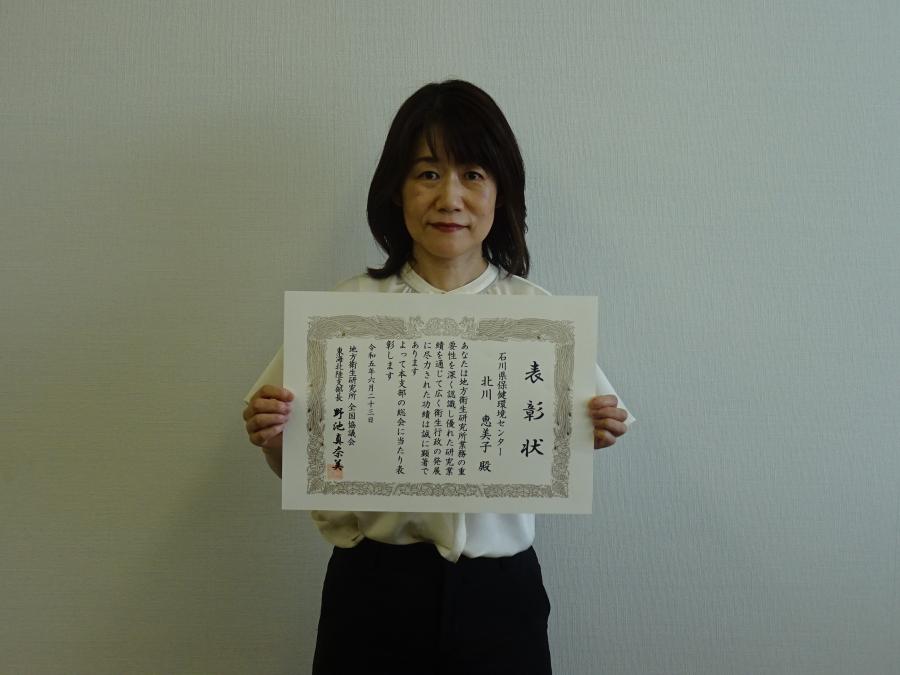 表彰状
石川県保健環境センター
北川 恵美子 殿
あなたは地方衛生研究所業務の重
要性を深く認識し優れた研究業
績を通じて広く衛生行政の発展
に尽力された功績は誠に顕著で
あります
よって本支部の総会に当たり表
彰します
令和五年六月二十三日
地方衛生研究所 全国協議会
東海北陸支部長 野池真奈美